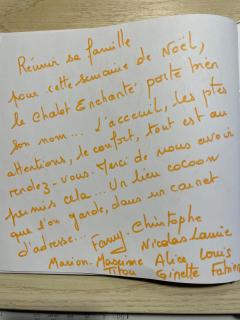 Réunir sa famille
pour cette semaine de Noël,
le Chalet Enchanté porte bien
son nom... L'acceuil, les ptes
attentions, le confort, tout est au
rendez-vous. Merci de nous avoir
permis cela... Un lieu cocoon
que l'on garde, dans un carnet
d'adresse... Fanny. Christophe
Nicolas Laurie
Marion. Maxime Alice Louis
Titou Ginette